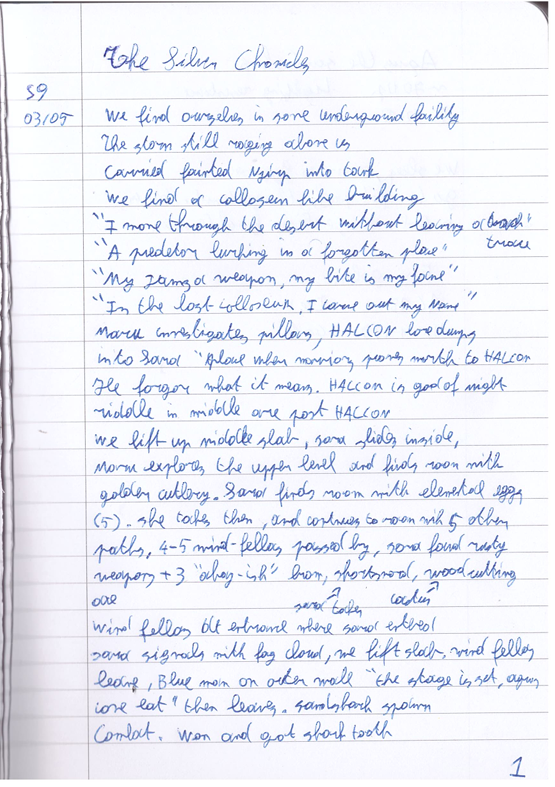 The Silver Chronicles
S9
03/05 We find ourselves in some underground facility
The storm still raging above us
Carried fainted into
We find a collosseum like building
"I move through the desert without leaving a
trace
"A predator lurking in a forgotten place"
"My a weapon, my bite is my"
"In the lost colloseum, I carve out my Name"
investigates pillars, HALCON
into Sand "A place when warriors proves worth to HALCON
He forgor what it means. HALCON is god of might
riddle in middle are past HALCON
we lift up middle slab, sara slides inside,
explores the upper level and finds room with
golden cutlery. Sara finds room with elemental eggs
(5). she takes them, and continues to room with 5 other
paths, 4-5 wind-fellas passed by, sara found rusty
weapons + 3 shortsword, woodcutting
axe sara takes
wind fellas at entrance where sara entered
sara signals with fog cloud, we lift slab, wind fellas
leave, Blue man on outer wall "the stage is set,
eat" then leaves. sandshark spawn
Combat. Won and got shark tooth
1